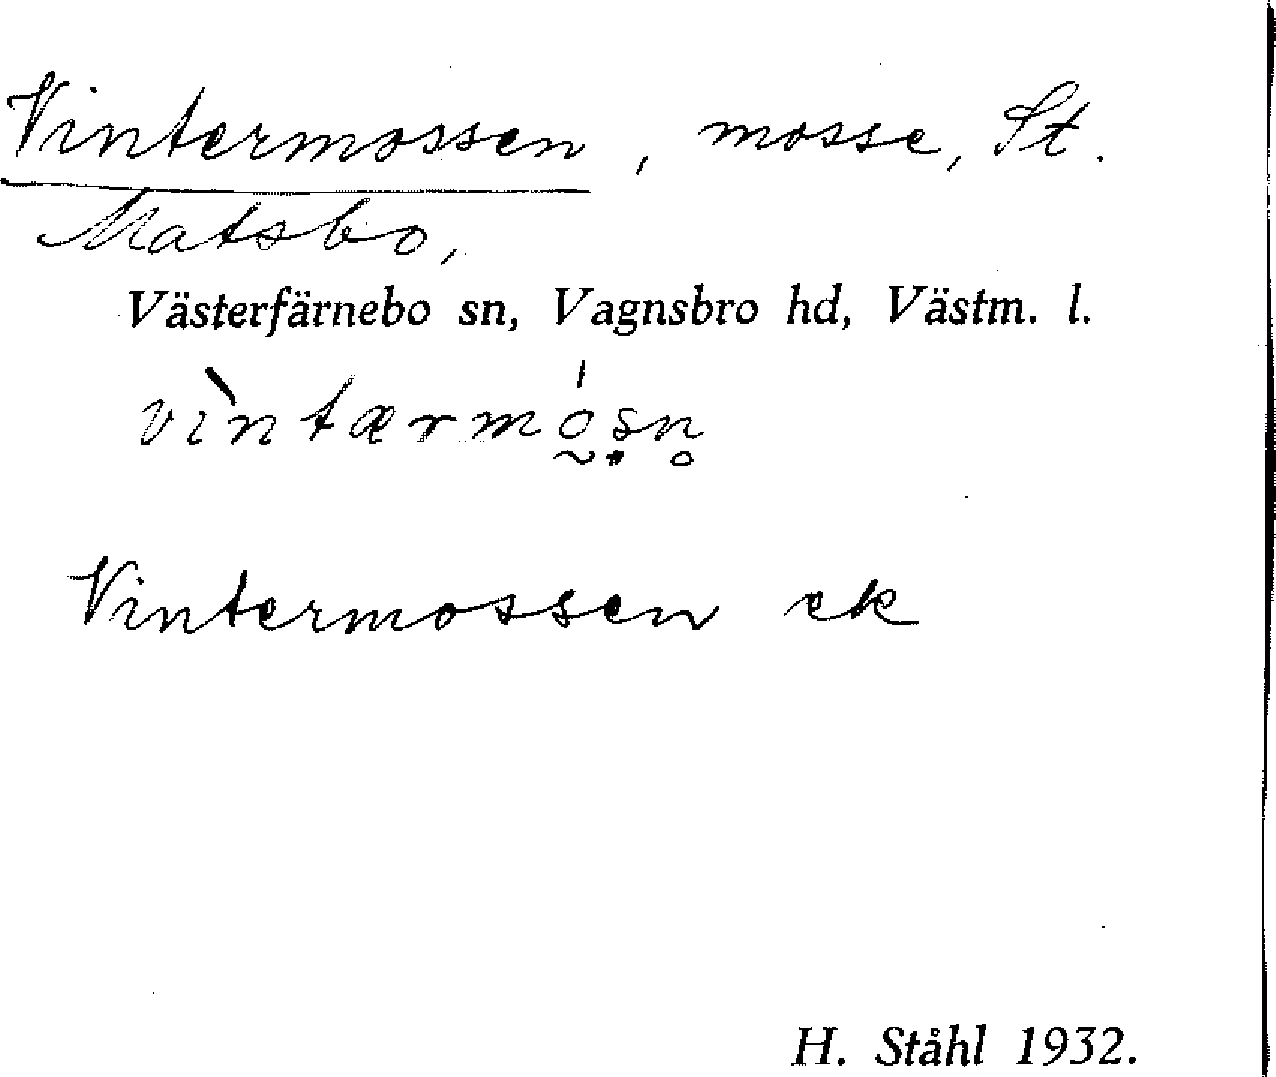 Vintermossen, mosse, St.
Matsbo,
Västerfärnebo sn, Vagnsbro hd, Västm. l.
vìntærmó̰ṣn̥
Vintermossen ek
H. Ståhl 1932.